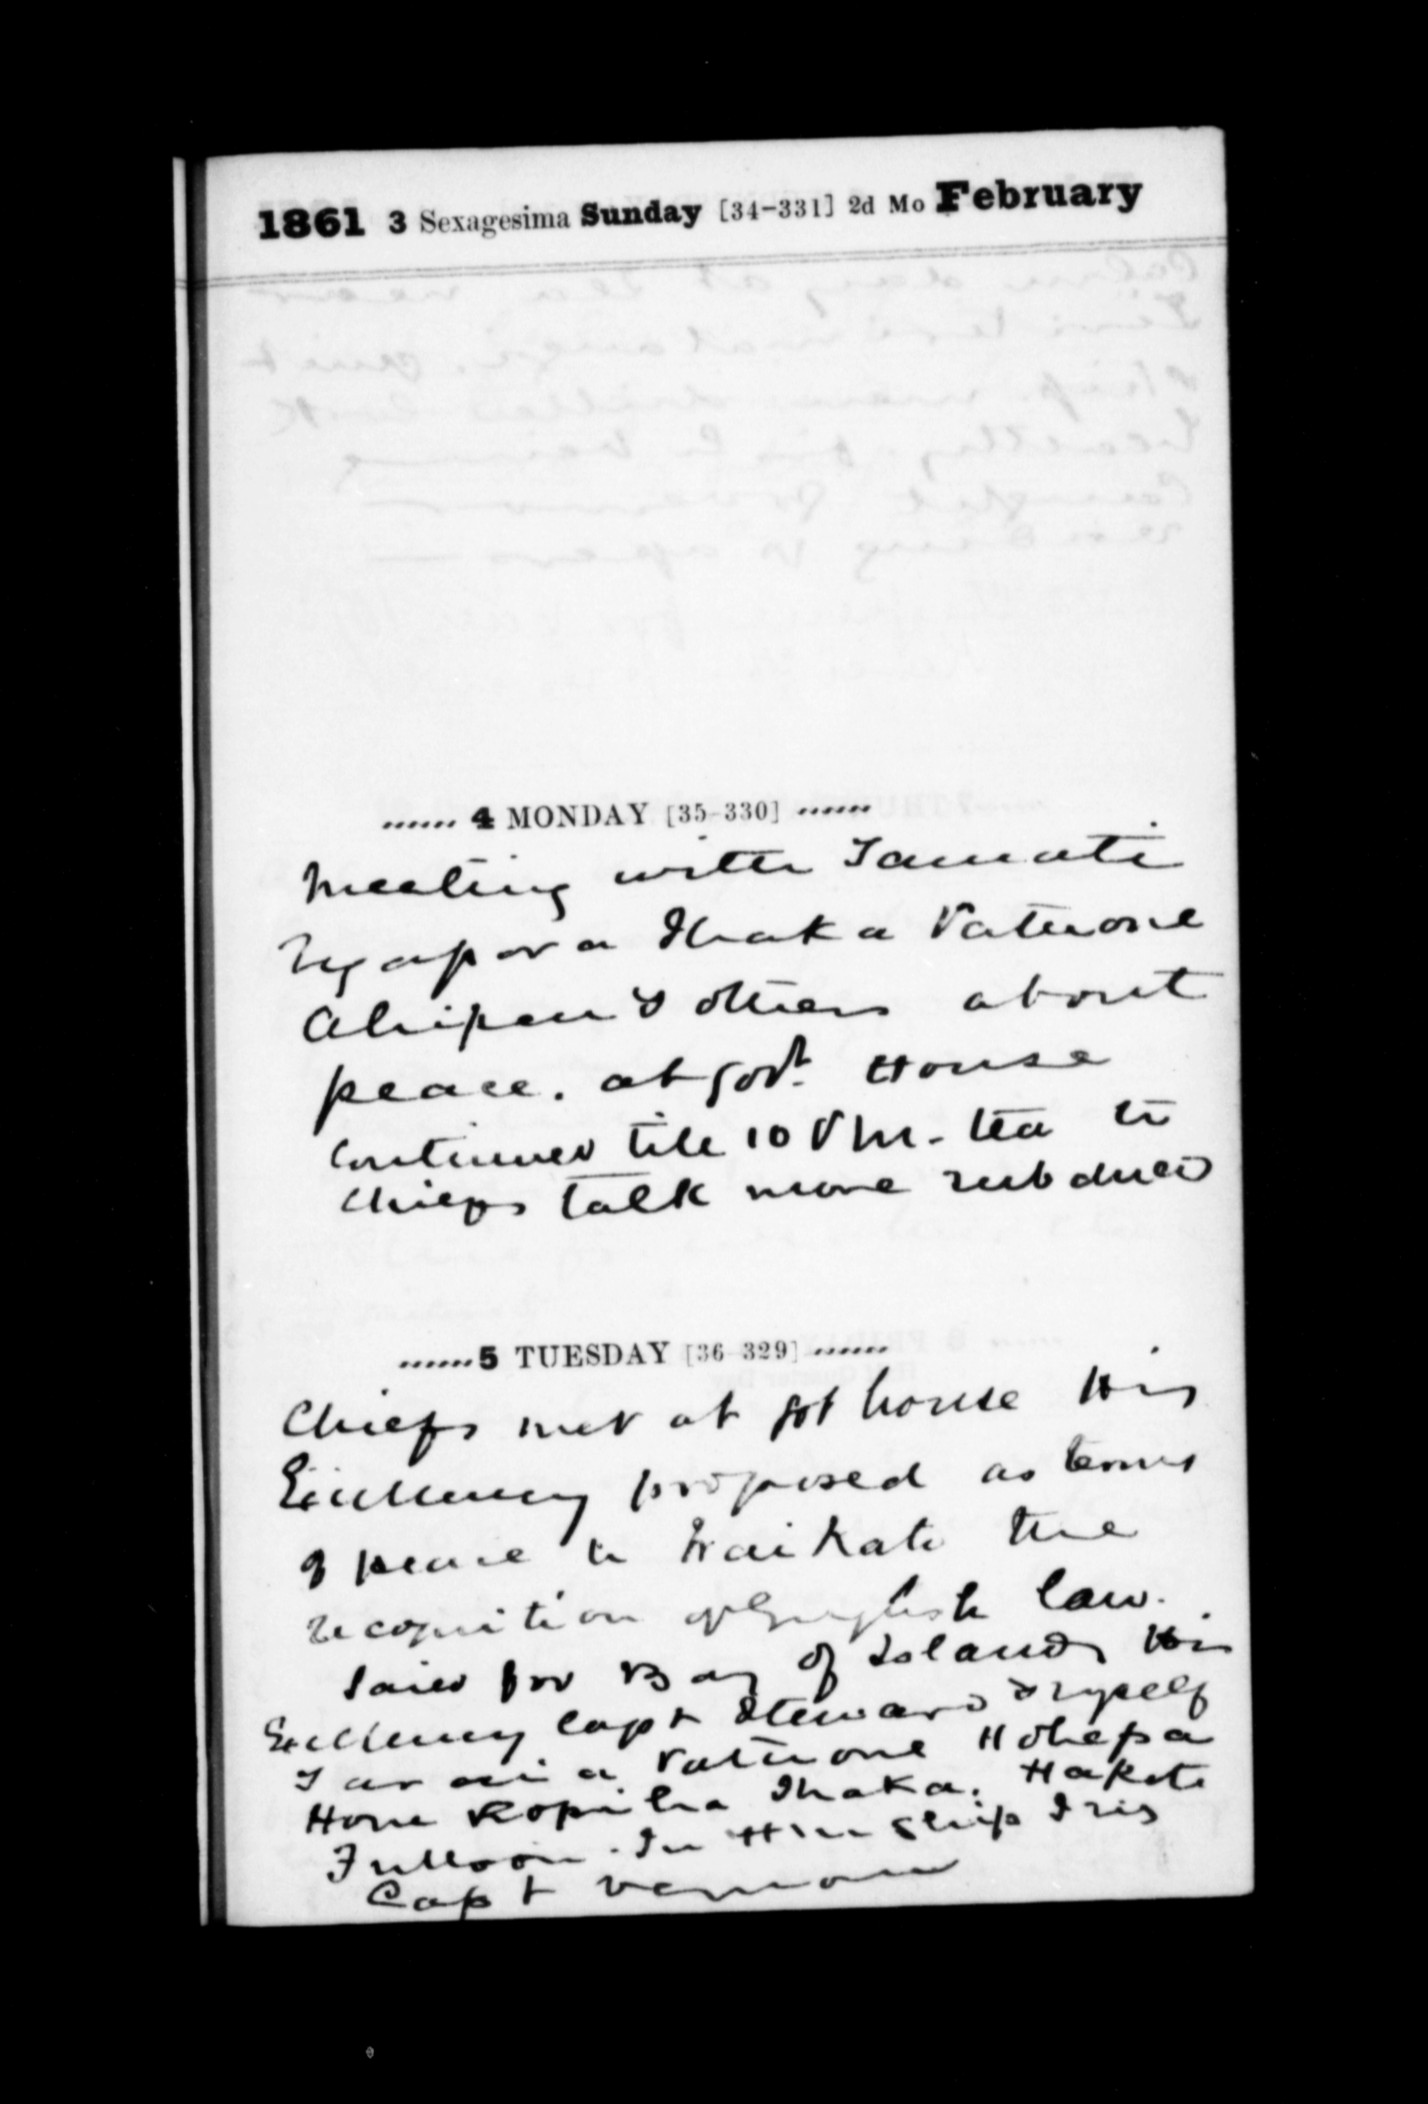 1861 3 Sexagesima Sunday [34-331] 2d Mo February
...... 4 MONDAY [35-330] ......
Meeting with Tamati
Ngapora Ihaka Patuone
& others about
peace. at Govt. House
Continued till 10 P M. tea to
Chiefs talk more subdued
...... 5 TUESDAY [36-329] ......
Chiefs met at Govt house His
Excellency proposed as terms
of peace to Waikato the
recognition of English law.
Sailed for Bay of Islands His
Excellency Capt Steward & myself
Patuone Hohepa
Hone Ropiha Ihaka.
Fulloon. In HM Ship Iris
Capt